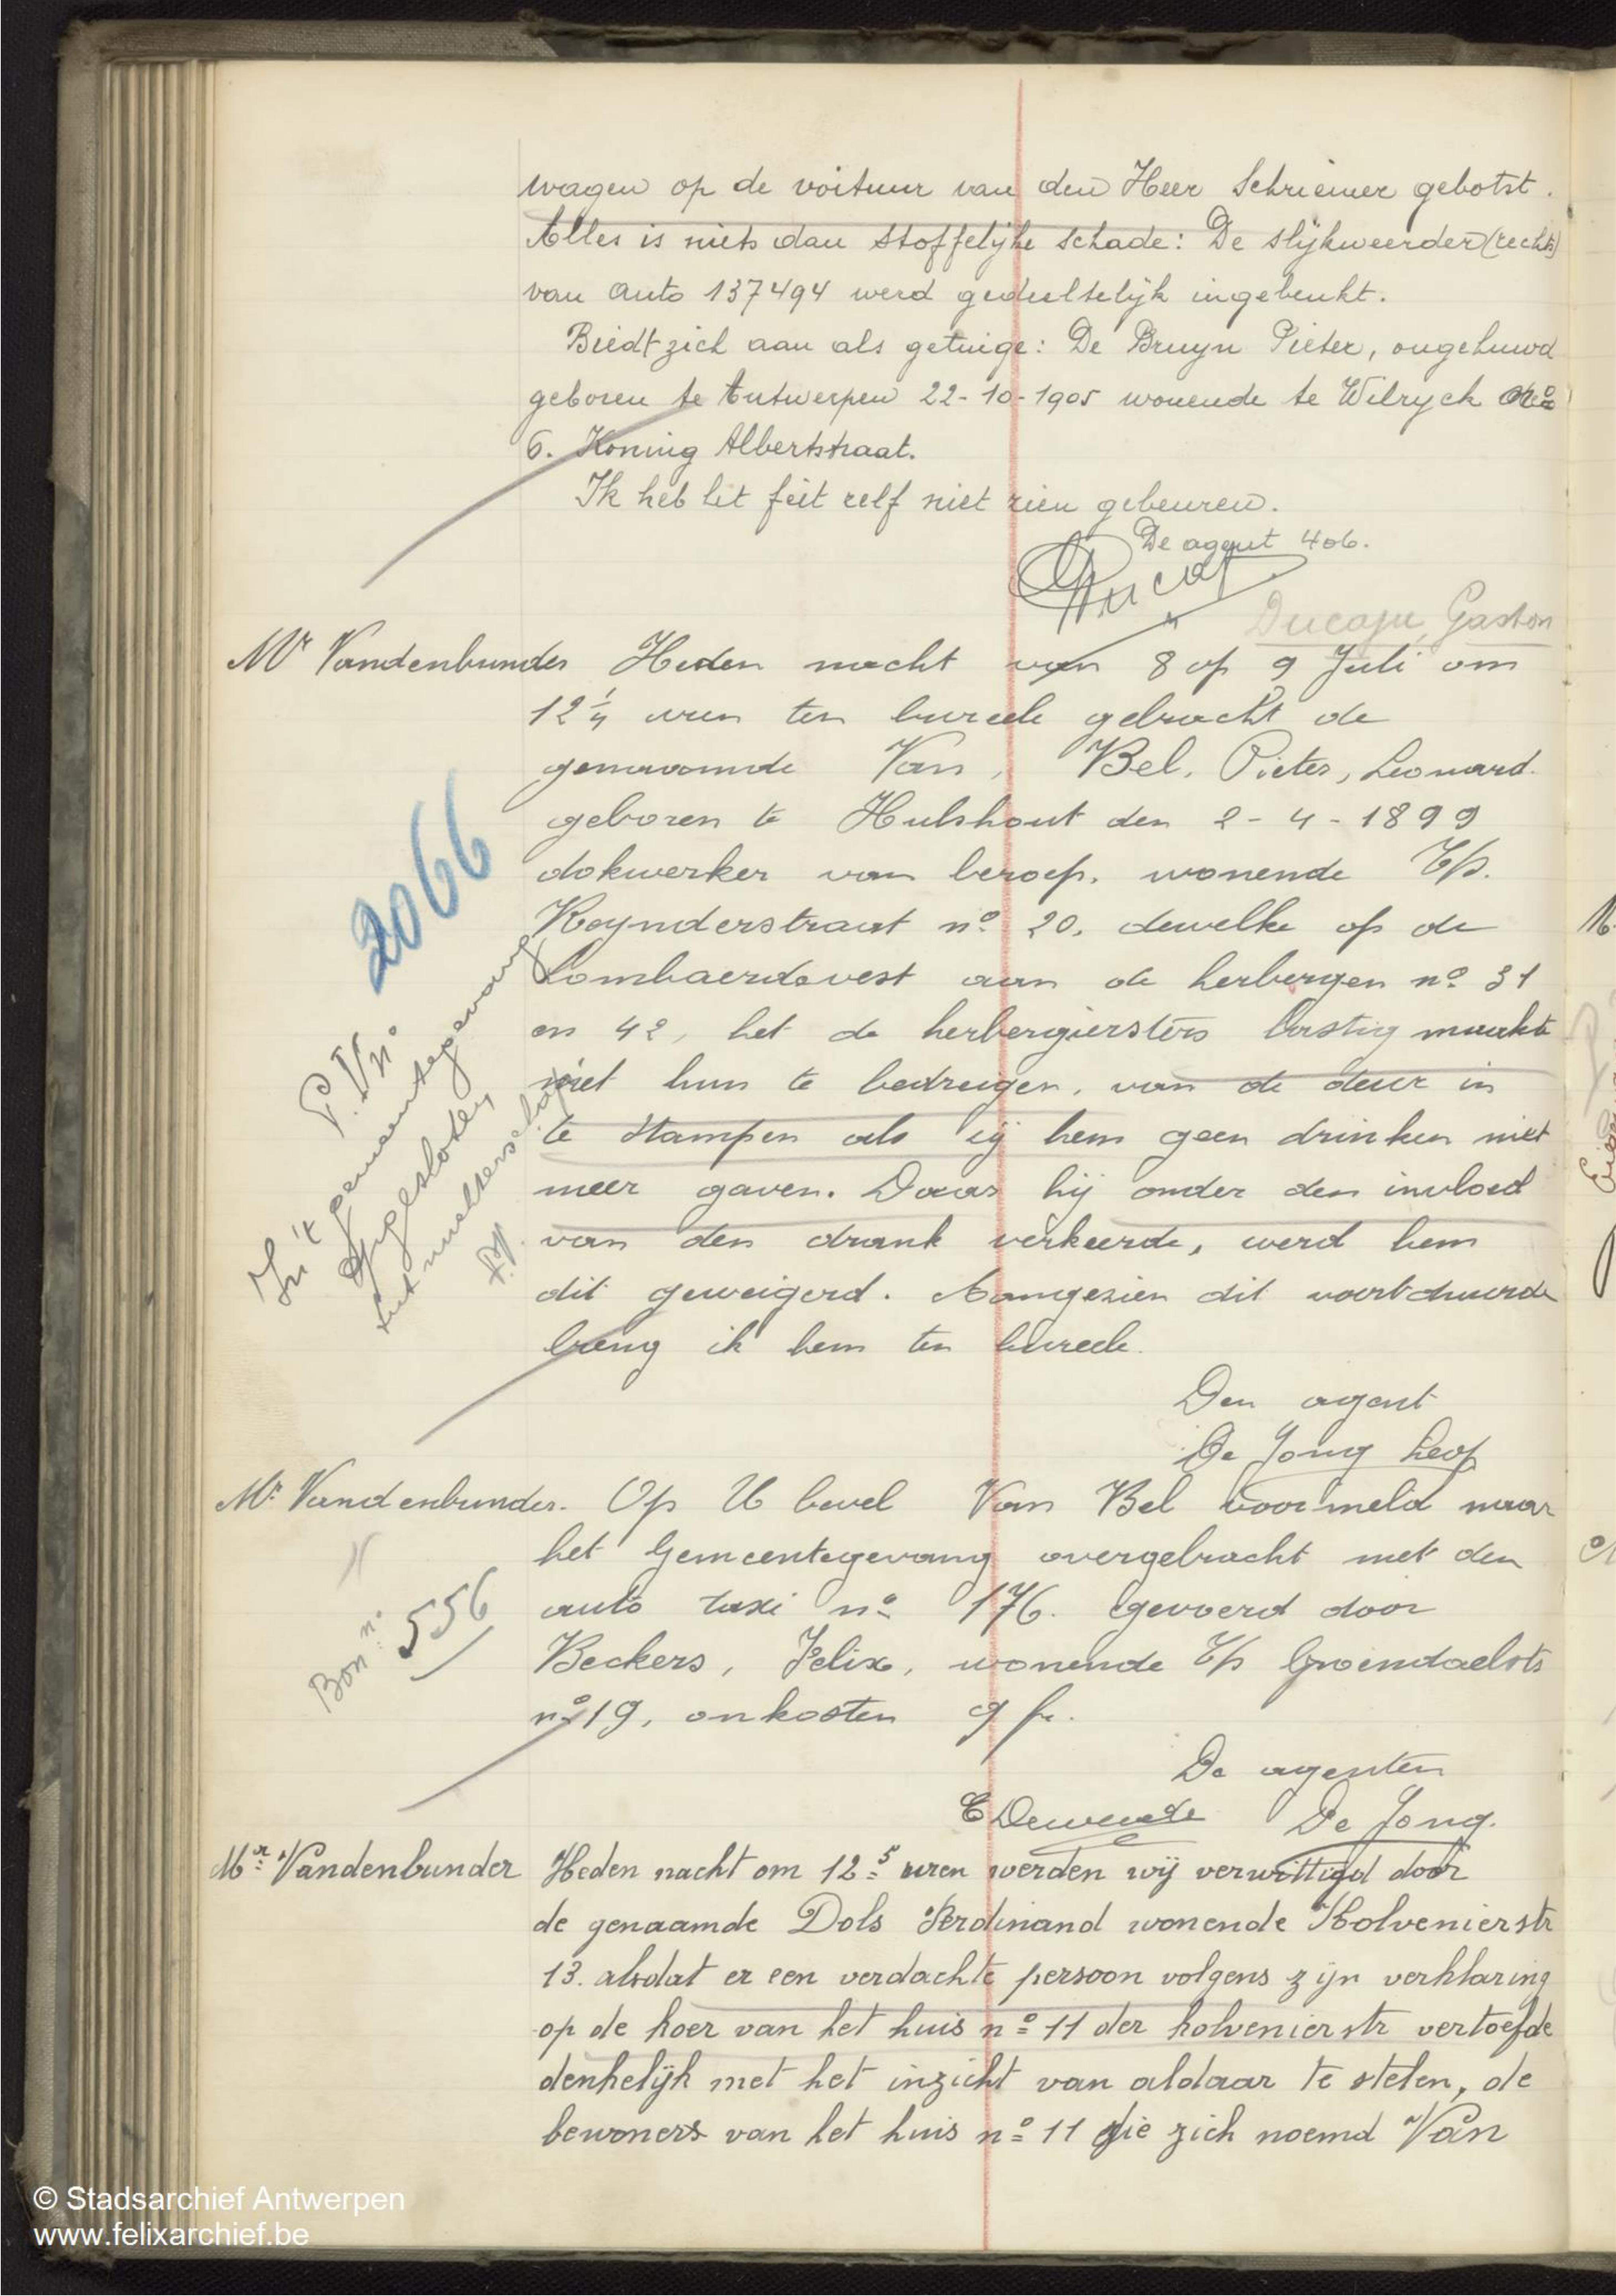 wagen op de voituur van den Heer Schriemer gebotst.
Alles is niets dan stoffelijke schade: De slijkweerder (rechts)
van auto 137494 werd gedeeltelijk ingebeukt.
Biedt zich aan als getuige: De Bruyn Pieter, ongehuwd
geboren te Antwerpen 22-10-1905 wonende te Wilryck
6. Koning Albertstraat.
Ik heb het feit zelf niet zien gebeuren.
De agent 406.
Ducaju Gaston
Mr Vandenbunder Heden nacht van 8 op 9 Juli om
12 1/4 uren ten bureele gebracht de
genaamde Van, Bel, Pieter, Leonard.
geboren te Hulshout den 2-4-1899
dokwerker van beroep, wonende T/p.
Reynderstraat nº 20, dewelke op de
Lombaerdevest aan de herbergen nº 31
en 42, het de herbergiersters lastig maakte
met hun te bedreigen, van de deur in
te stampen als zij hem geen drinken niet
meer gaven. Daar hij onder den invloed
van den drank verkeerde, werd hem
dit geweigerd. Aangezien dit voortduurde
breng ik hem ten bureele.
2066
P.V. nº
In 't gemeentegevang
opgesloten
Den agent
De Jong Leop
Mr Vandenbunder. Op U bevel Van Bel voormeld naar
het Gemeentegevang overgebracht met den
auto taxi nº 176. gevoerd door
Beckers, Felix, wonende T/p Groendaelstr
nº 19, onkosten 9 fr.
Bon nº 556
De agenten
De Jong.
Mr Vandenbunder Heden nacht om 12 5 uren werden wij verwittigd door
de genaamde Dols Ferdinand wonende Kolvenierstr
13. alsdat er een verdachte persoon volgens zijn verklaring
op de koer van het huis nº 11 der kolvenierstr vertoefde
denkelijk met het inzicht van aldaar te stelen, de
bewoners van het huis nº 11 die zich noemd Van
© Stadsarchief Antwerpen
www.felixarchief.be